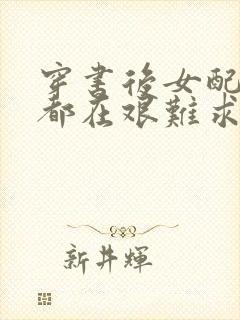 穿書後女配
都在艰難求
新井輝